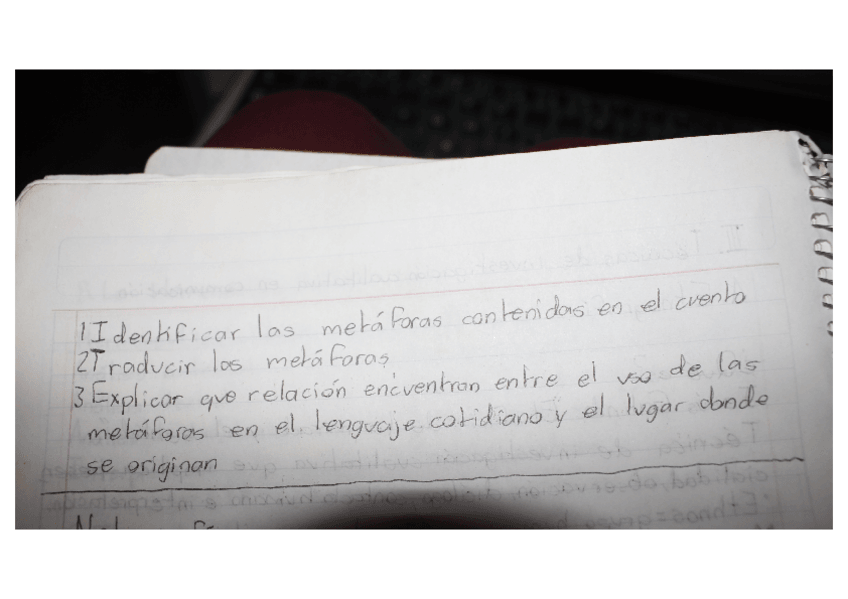 1 Identificar las metáforas contenidas en el cuento
2 Traducir las metáforas
3 Explicar que relación encuentran entre el uso de las
metáforas en el lenguaje cotidiano y el lugar donde
se originan